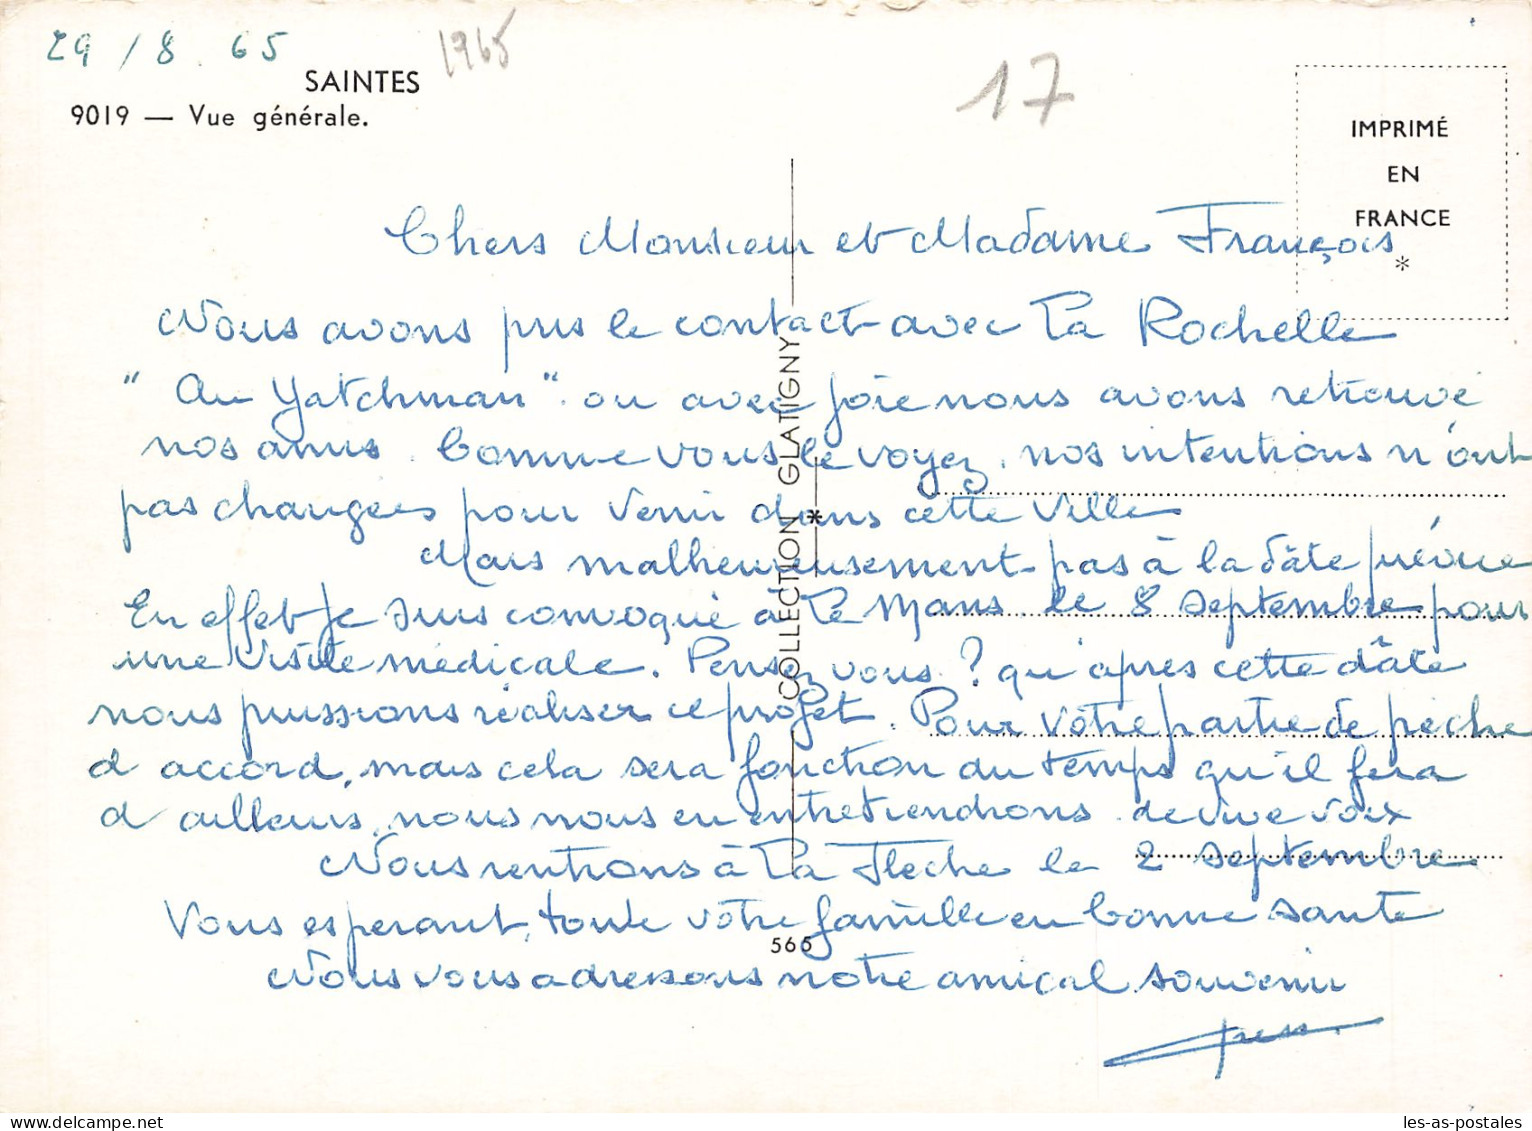 29/8.65
1965
SAINTES
9019 — Vue générale.
17
IMPRIMÉ
EN
FRANCE
*
Chers Monsieur et Madame François
Nous avons pris le contact avec La Rochelle
" Au Yatchman". ou avec joie nous avons retrouvé
nos amis. Comme vous le voyez, nos intentions n'ont
pas changees pour venir dans cette ville
Mais malheureusement pas à la dâte prévue
En effet je suis convoqué à Le Mans le 8 septembre pour
une visite médicale. Pensez vous ? qu'apres cette dâte
nous puissions réaliser ce projet. Pour votre partie de pêche
d accord, mais cela sera fonction du temps qu'il fera
d ailleurs, nous nous en entretiendrons de vive voix
Nous rentrons à La Flèche le 2 septembre.
Vous esperant, toute votre famille en bonne sante
Nous vous adressons notre amical souvenir
COLLECTION GLATIGNY
*
565
les-as-postales